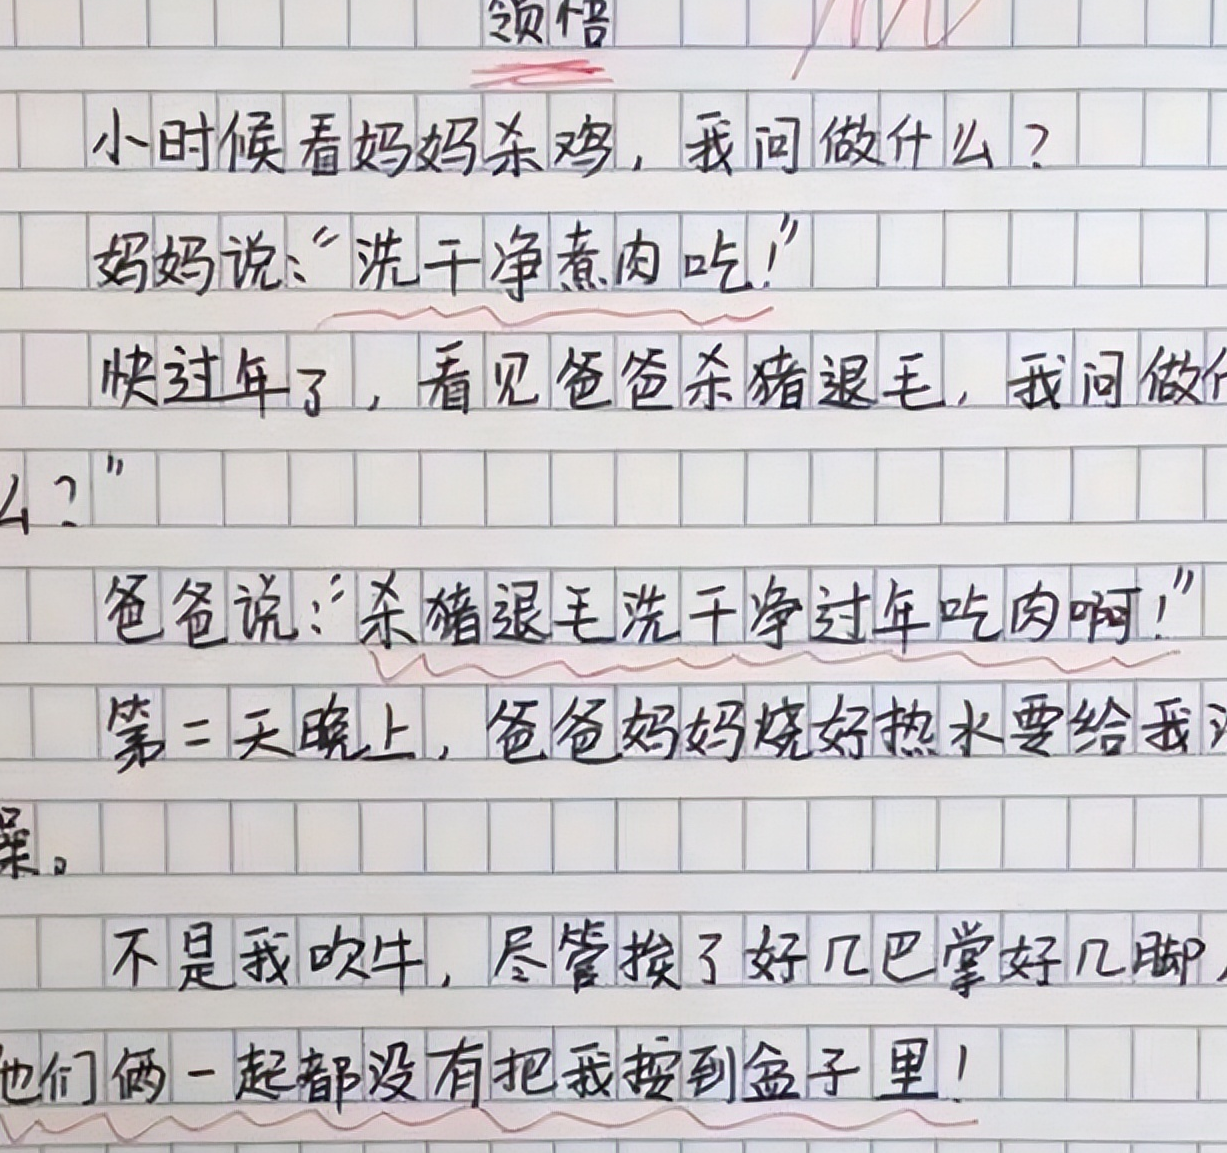 领悟
小时候看妈妈杀鸡，我问做什么？
妈妈说：“洗干净煮肉吃！”
快过年了，看见爸爸杀猪退毛，我问做什
么？”
爸爸说：“杀猪退毛洗干净过年吃肉啊！”
第二天晚上，爸爸妈妈烧好热水要给我
澡。
不是我吹牛，尽管挨了好几巴掌好几脚，
他们俩一起都没有把我按到盆子里！